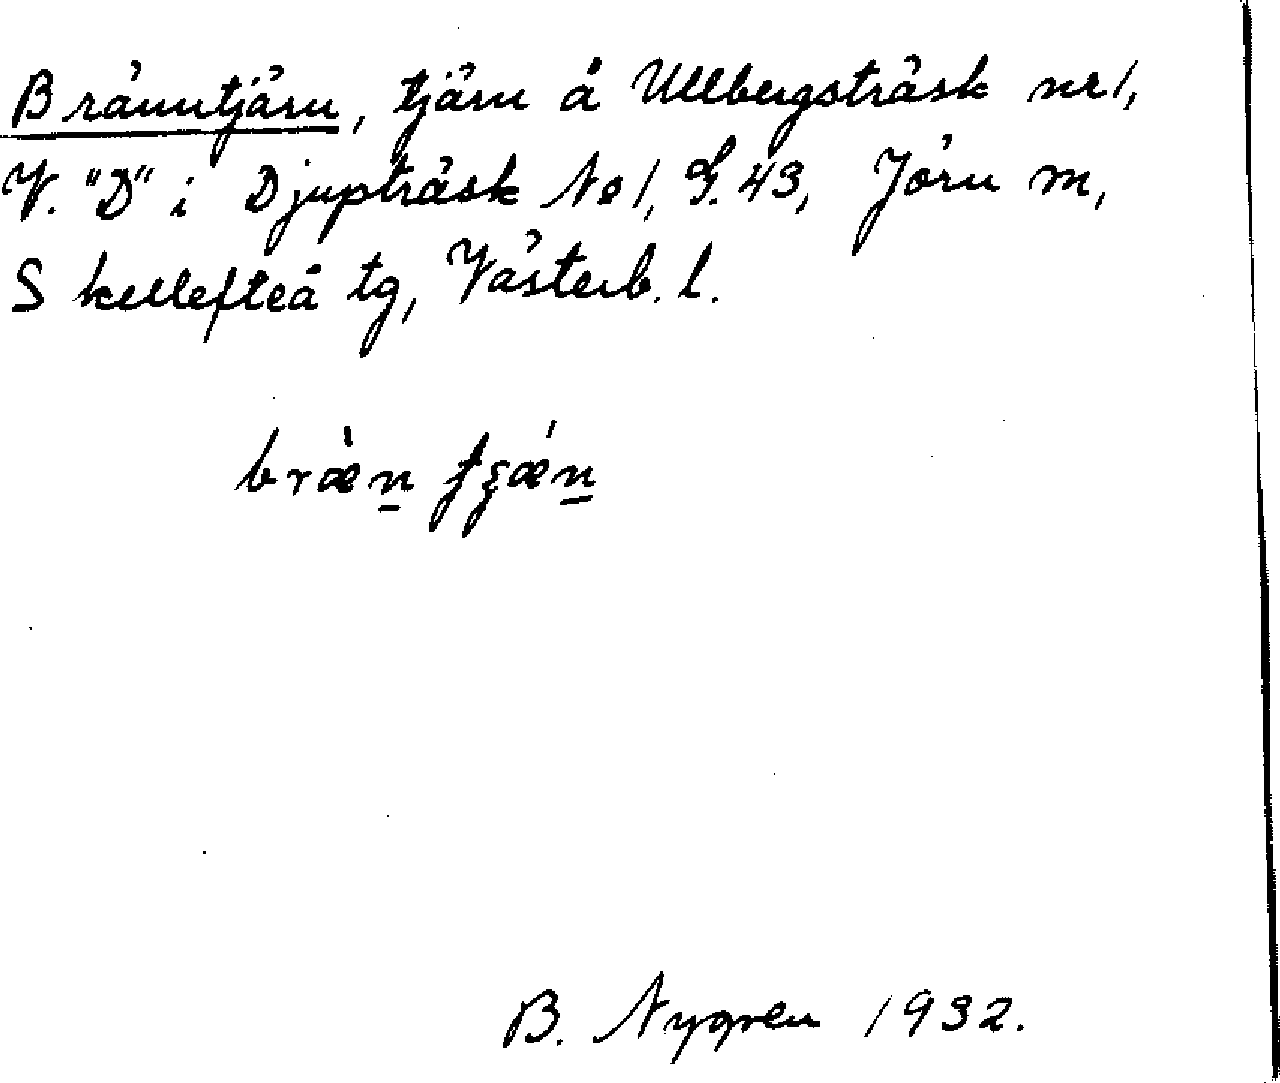 Bränntjärn, tjärn å Ullbergsträsk nr 1,
V. "D" i Djupträsk No 1, S. 43, Jörn m,
Skellefteå tg, Västerb. l.
bræ̀n tʂǽn
B. Nygren 1932.